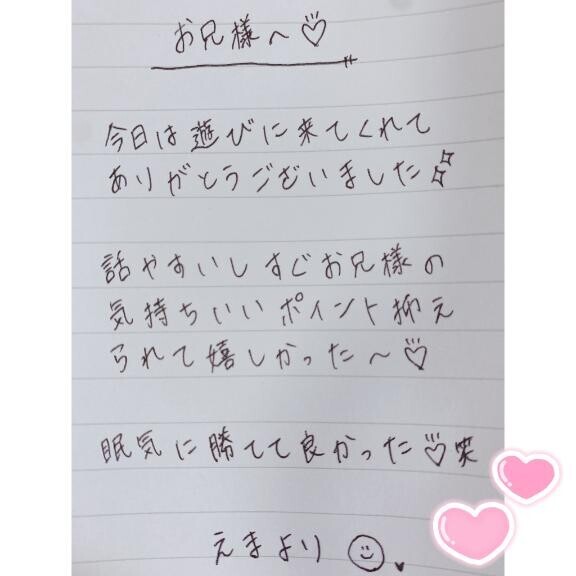 お兄様へ♡
今日は遊びに来てくれて
ありがとうございました
話やすいしすぐお兄様の
気持ちいいポイント抑え
られて嬉しかった〜♡
眠気に勝てて良かった♡笑
えまより